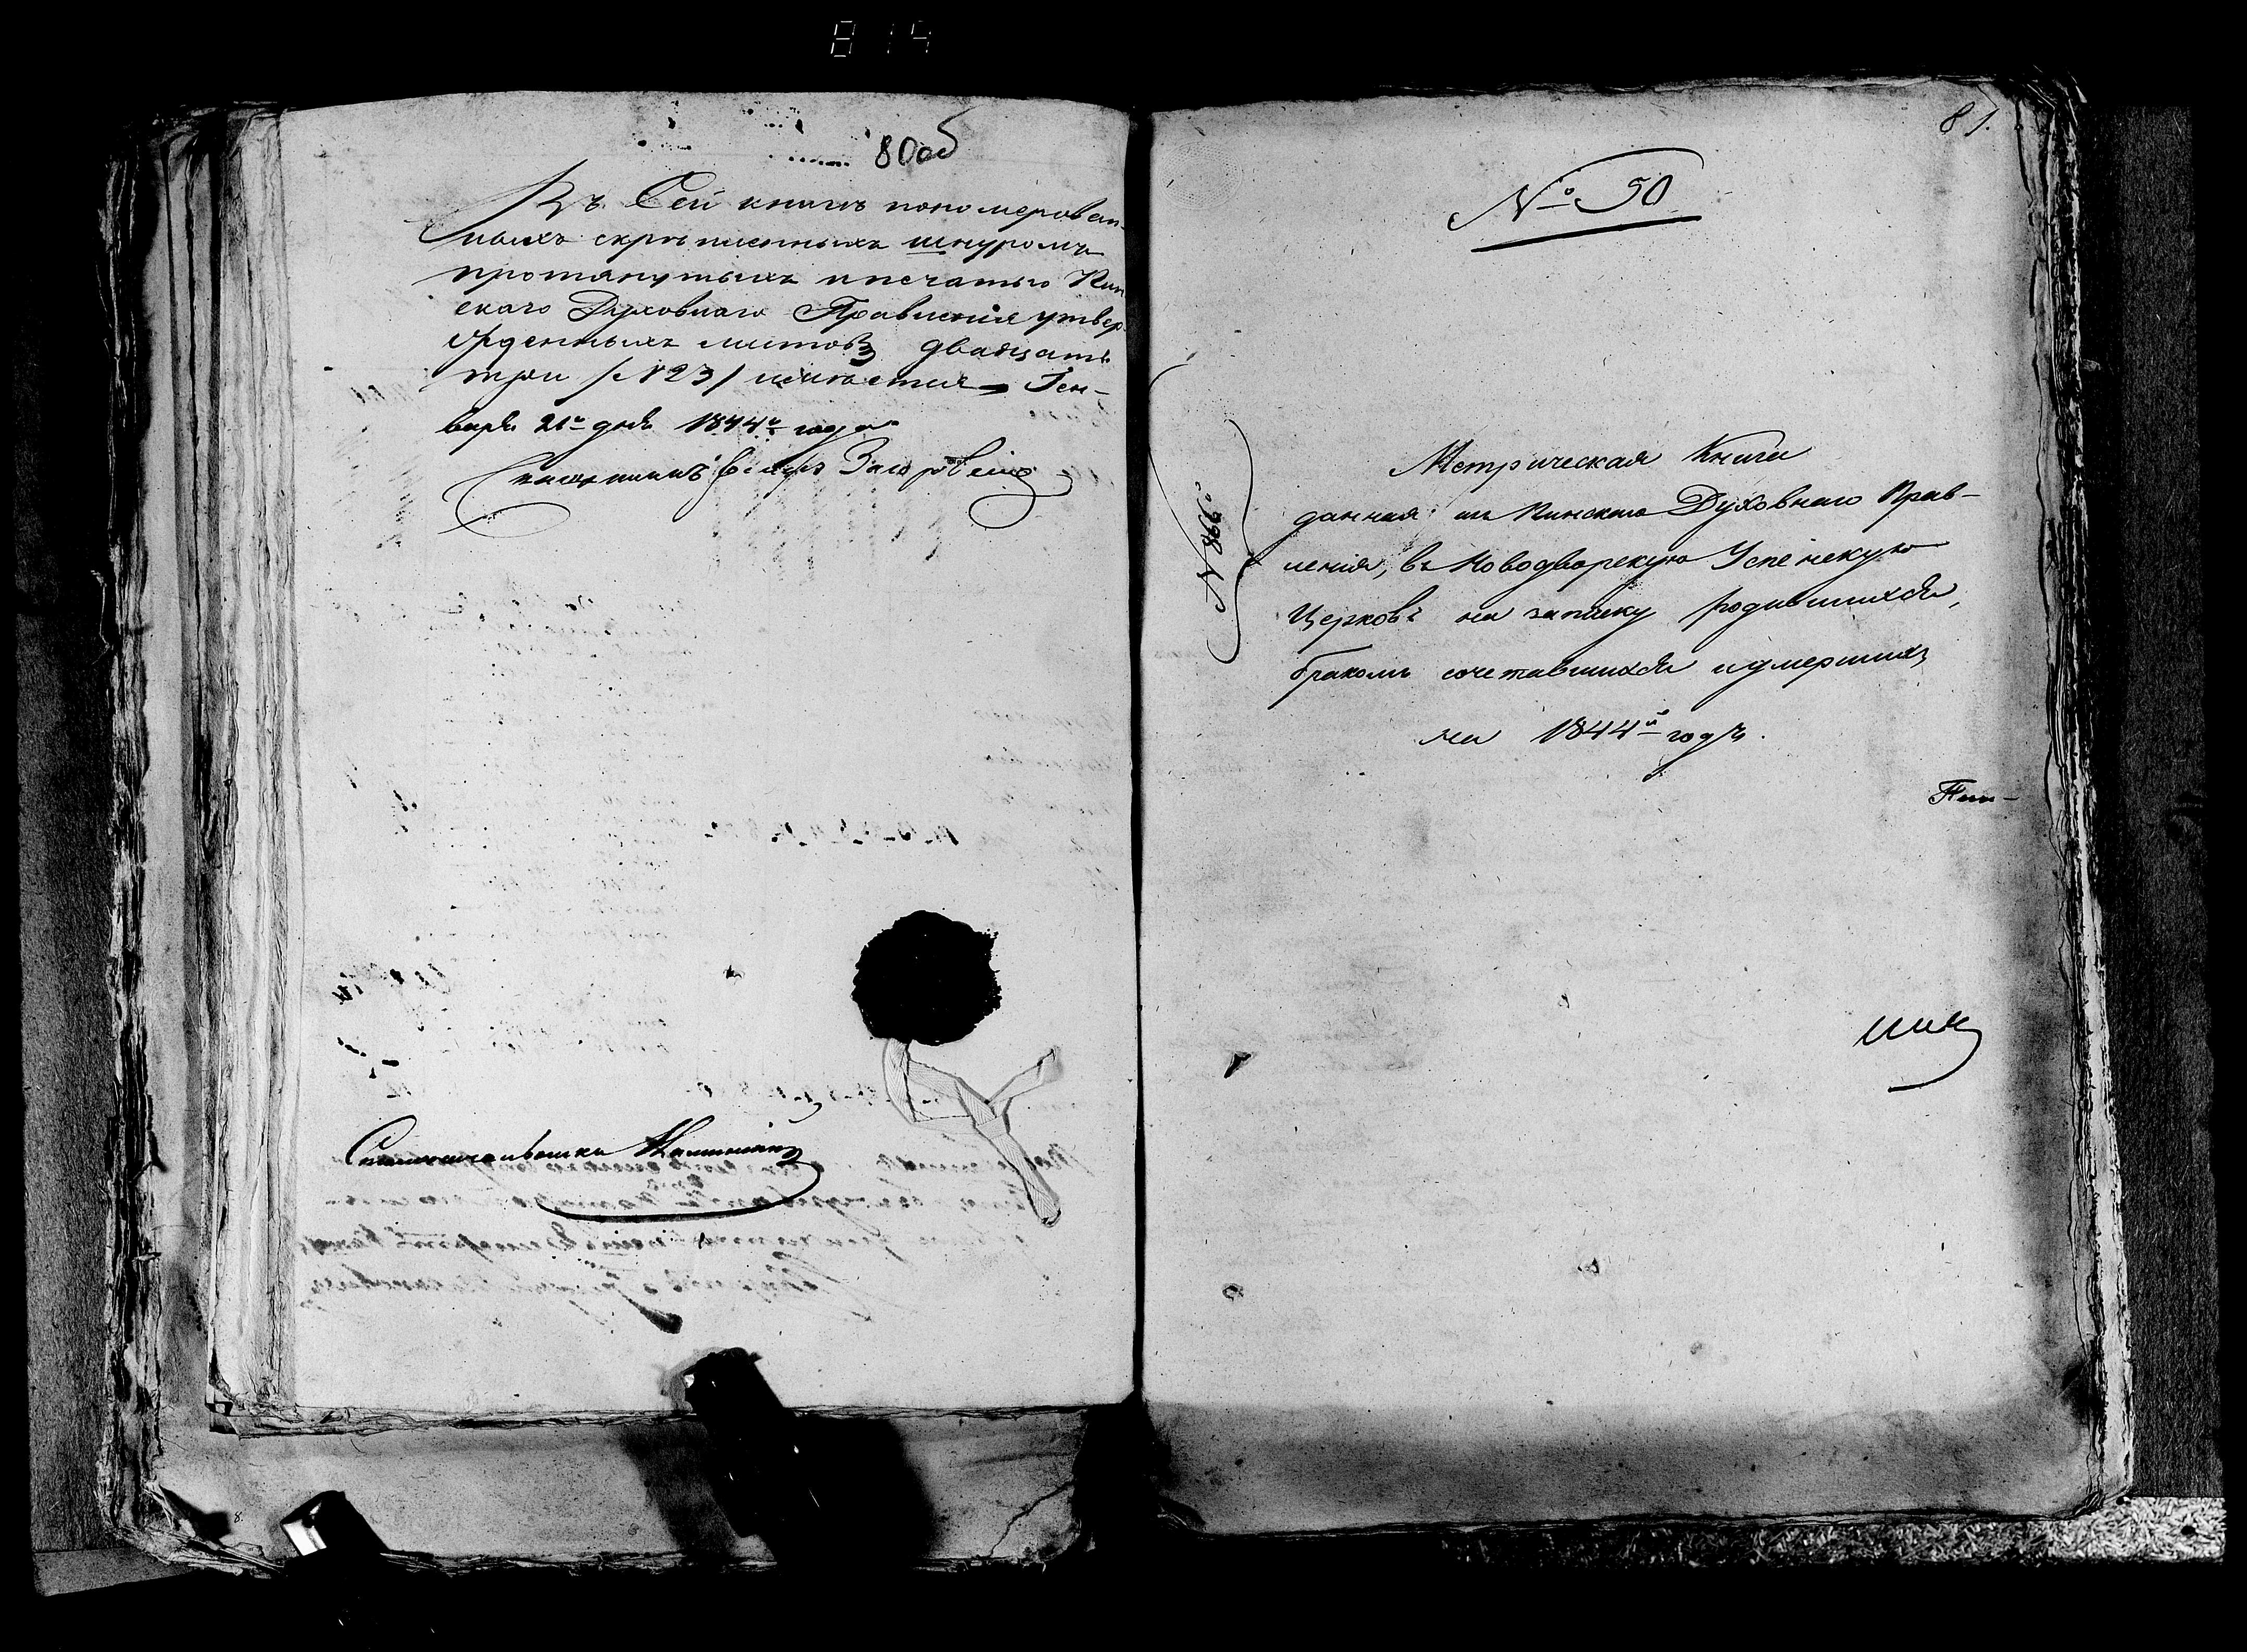 814
80об
Въ Сей книгѣ пономерован-
ныхъ скрѣпленныхъ шнуромъ
протянутыхъ и печатью Пин
скаго Духовнаго Правленія утвер-
жденныхъ листовъ двадцать
три /№ 23/ имѣется Ген-
варя 21го дня 1844го года
81.
№ 50
№ 866й
Метрическая Книга
данная изъ Пинскаго Духовнаго Прав-
ленія, въ Новодворскую Успенскую
Церковь на записку родившихся,
бракомъ сочетавшихся и умершихъ
на 1844й годъ.
Пин-